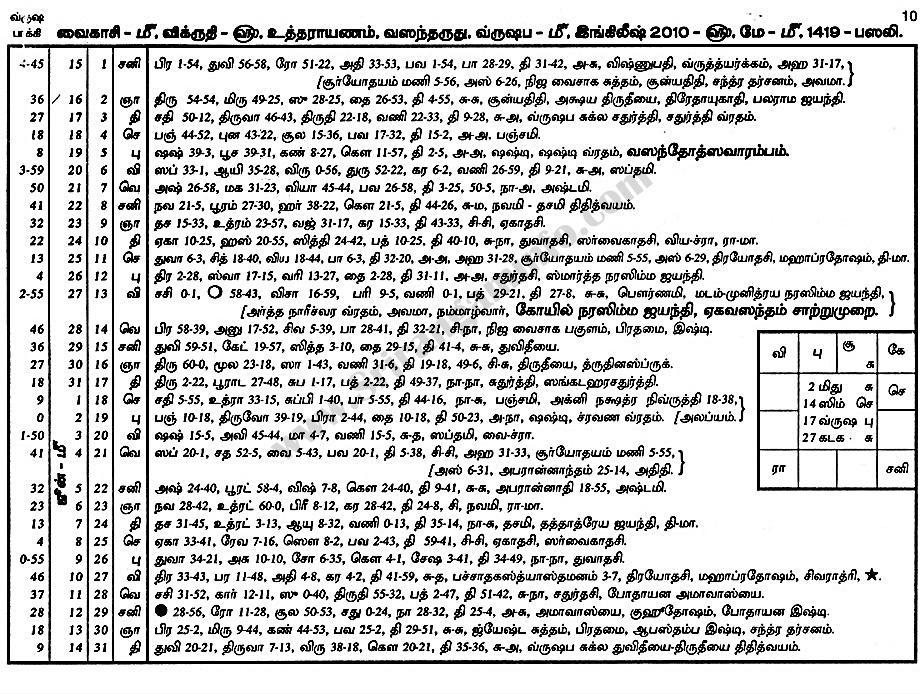 வ்ருஷ 10
பாக்கி வைகாசி - மீ, விக்ருதி - ௵, உத்தராயணம், வஸந்தருது, வ்ருஷப - மீ, இங்கிலீஷ் 2010 - ௵, மே - மீ, 1419 - பஸலி.
4-45 15 1 சனி பிர 1-54, துவி 56-58, ரோ 51-22, அதி 33-53, பவ 1-54, பா 28-29, தி 31-42, அ-சு, விஷ்ணுபதி, வ்ருத்த்யர்க்கம், அஹ 31-17,
[சூர்யோதயம் மணி 5-56, அஸ் 6-26, நிஜ வைசாக சுத்தம், சூன்யதிதி, சந்த்ர தர்சனம், அவமா.
36 16 2 ஞா திரு 54-54, மிரு 49-25, ஸு 28-25, தை 26-53, தி 4-55, சு-சு, சூன்யதிதி, அக்ஷய திருதீயை, திரேதாயுகாதி, பலராம ஜயந்தி.
27 17 3 தி சதி 50-12, திருவா 46-43, திருதி 22-18, வணி 22-33, தி 9-28, சு-அ, வ்ருஷப சுக்ல சதுர்த்தி, சதுர்த்தி வ்ரதம்.
18 18 4 செ பஞ் 44-52, புன 43-22, சூல 15-36, பவ 17-32, தி 15-2, அ-அ, பஞ்சமி.
8 19 5 பு ஷஷ் 39-3, பூச 39-31, கண் 8-27, கௌ 11-57, தி 2-5, அ-அ, ஷஷ்டி, ஷஷ்டி வ்ரதம், வஸந்தோத்ஸவாரம்பம்.
3-59 20 6 வி ஸப் 33-1, ஆயி 35-28, விரு 0-56, துரு 52-22, கர 6-2, வணி 26-59, தி 9-21, சு-அ, ஸப்தமி.
50 21 7 வெ அஷ் 26-58, மக 31-23, வியா 45-44, பவ 26-58, தி 3-25, 50-5, நா-அ, அஷ்டமி.
41 22 8 சனி நவ 21-5, பூரம் 27-30, ஹர் 38-22, கௌ 21-5, தி 44-26, சு-ம, நவமி - தசமி திதித்வயம்.
32 23 9 ஞா தச 15-33, உத்ரம் 23-57, வஜ் 31-17, கர 15-33, தி 43-33, சி-சி, ஏகாதசி.
22 24 10 தி ஏகா 10-25, ஹஸ் 20-55, ஸித்தி 24-42, பத் 10-25, தி 40-10, சு-நா, துவாதசி, ஸர்வைகாதசி, விய-ச்ரா, ரா-மா.
13 25 11 செ துவா 6-3, சித் 18-40, விய 18-44, பா 6-3, தி 32-20, அ-அ, அஹ 31-28, சூர்யோதயம் மணி 5-55, அஸ் 6-29, திரயோதசி, மஹாப்ரதோஷம், தி-மா.
4 26 12 பு திர 2-28, ஸ்வா 17-15, வரி 13-27, தை 2-28, தி 31-11, அ-அ, சதுர்தசி, ஸ்மார்த்த நரஸிம்ம ஜயந்தி.
2-55 27 13 வி சசி 0-1, ○ 58-43, விசா 16-59, பரி 9-5, வணி 0-1, பத் 29-21, தி 27-8, சு-சு, பௌர்ணமி, மடம்-முனித்ரய நரஸிம்ம ஜயந்தி,
[அர்த்த நாரீச்வர வ்ரதம், அவமா, நம்மாழ்வார், கோயில் நரஸிம்ம ஜயந்தி, ஏகவஸந்தம் சாற்றுமுறை.
46 28 14 வெ பிர 58-39, அனு 17-52, சிவ 5-39, பா 28-41, தி 32-21, சி-நா, நிஜ வைசாக பகுளம், பிரதமை, இஷ்டி.
36 29 15 சனி துவி 59-51, கேட் 19-57, ஸித்த 3-10, தை 29-15, தி 41-4, சு-சு, துவிதீயை.
27 30 16 ஞா திரு 60-0, மூல 23-18, ஸா 1-43, வணி 31-6, தி 19-18, 49-6, சி-சு, திருதீயை, த்ருதினஸ்ப்ருக்.
18 31 17 தி திரு 2-22, பூராட 27-48, சுப 1-17, பத் 2-22, தி 49-37, நா-நா, சதுர்த்தி, ஸங்கடஹரசதுர்த்தி.
9 1 18 செ சதி 5-55, உத்ரா 33-15, சுப்பி 1-40, பா 5-55, தி 44-16, நா-சு, பஞ்சமி, அக்னி நக்ஷத்ர நிவ்ருத்தி 18-38,
0 2 19 பு பஞ் 10-18, திருவோ 39-19, பிரா 2-44, தை 10-18, தி 50-23, அ-நா, ஷஷ்டி, சரவண வ்ரதம். [அலப்யம்.
1-50 3 20 வி ஷஷ் 15-5, அவி 45-44, மா 4-7, வணி 15-5, சு-த, ஸப்தமி, வை-ச்ரா.
ஜூன் - மீ
41 4 21 வெ ஸப் 20-1, சத 52-5, வை 5-43, பவ 20-1, தி 5-38, சி-சி, அஹ 31-33, சூர்யோதயம் மணி 5-55,
[அஸ் 6-31, அபரான்னாந்தம் 25-14, அதிதி.
32 5 22 சனி அஷ் 24-40, பூரட் 58-4, விஷ் 7-8, கௌ 24-40, தி 9-41, சு-சு, அபரான்னாதி 18-55, அஷ்டமி.
23 6 23 ஞா நவ 28-42, உத்ரட் 60-0, பிரீ 8-12, கர 28-42, தி 24-8, சி, நவமி, ரா-மா.
13 7 24 தி தச 31-45, உத்ரட் 3-13, ஆயு 8-32, வணி 0-13, தி 35-14, நா-சு, தசமி, தத்தாத்ரேய ஜயந்தி, தி-மா.
4 8 25 செ ஏகா 33-41, ரேவ 7-16, ஸௌ 8-2, பவ 2-43, தி 59-41, சி-சி, ஏகாதசி, ஸர்வைகாதசி.
0-55 9 26 பு துவா 34-21, அசு 10-10, சோ 6-35, கௌ 4-1, சேஷ 3-41, தி 34-49, நா-நா, துவாதசி.
46 10 27 வி திர 33-43, பர 11-48, அதி 4-8, கர 4-2, தி 41-59, சு-த, பச்சாதகஸ்த்யாஸ்தமனம் 3-7, திரயோதசி, மஹாப்ரதோஷம், சிவராத்ரி, ★.
37 11 28 வெ சசி 31-52, கார் 12-11, ஸு 0-40, திருதி 55-32, பத் 2-47, தி 51-42, சு-நா, சதுர்தசி, போதாயன அமாவாஸ்யை.
28 12 29 சனி ● 28-56, ரோ 11-28, சூல 50-53, சது 0-24, நா 28-32, தி 25-4, அ-சு, அமாவாஸ்யை, குஹூதோஷம், போதாயன இஷ்டி.
18 13 30 ஞா பிர 25-2, மிரு 9-44, கண் 44-53, பவ 25-2, தி 29-51, சு-சு, ஜ்யேஷ்ட சுத்தம், பிரதமை, ஆபஸ்தம்ப இஷ்டி, சந்த்ர தர்சனம்.
9 14 31 தி துவி 20-21, திருவா 7-13, விரு 38-18, கௌ 20-21, தி 35-36, சு-அ, வ்ருஷப சுக்ல துவிதீயை-திருதீயை திதித்வயம்.
வி பு சூ சு கே
2 மிது சு செ
14 ஸிம் செ
17 வ்ருஷ பு
27 கடக சு
ரா சனி